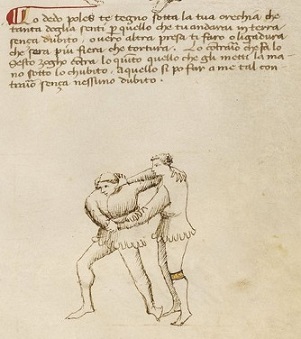 Lo dedo poles te tegno sotta la tua orechia che
tanta doglia senti p quello che tu andarai in terra
senza dubito. overo altra presa ti faro o ligadura
che sera più fiera che tortura. Lo contrario che fa lo
sesto zogho contra lo quito quello che gli metti la ma
no sotto lo chubito. Aquello si po far a me tal con
trario senza nessuno dubito.